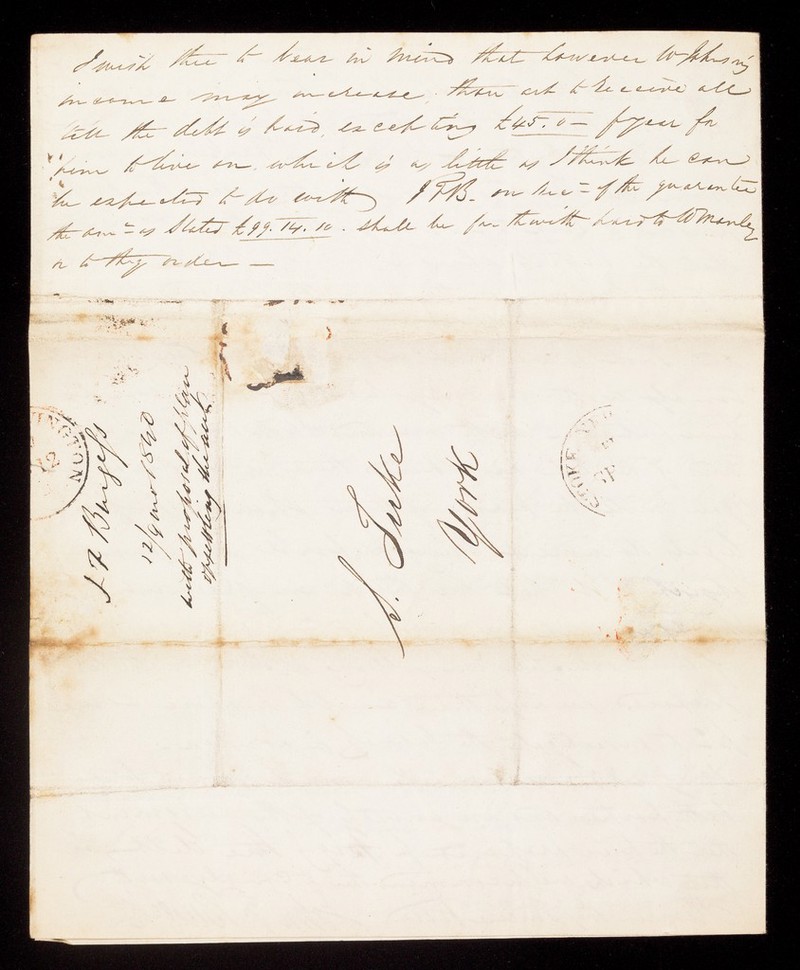 I wish thee to bear in mind that however W Johnson's
income may increase, thou art to receive all
till the debt is paid, excepting £45.0- p year for
him to live on which is as little as I think he can
be expected to do with JFB. on rec= of the guarantee
the amt= as Stated £99.14.10. shall be forthwith paid to W Manley
or to thy order —
J F Burgess
12/9mo 1840
with proposal of plan
of settling the acct.
S. Tuke
York
STOKE NEW